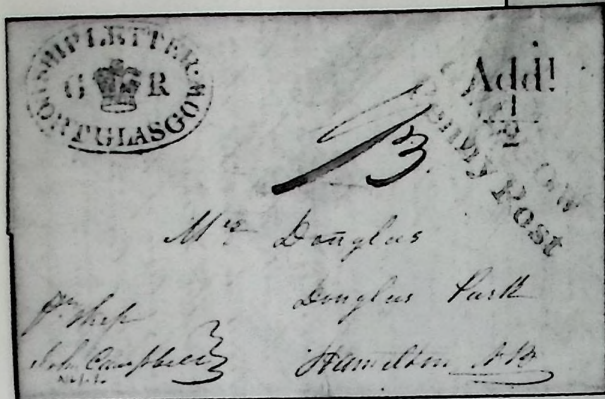 SHIP LETTER
G R
PORT GLASGOW
Add!
1
2
Penny Post
1/3
Mrs Douglas
Douglas Park
Hamilton NB
Pr Ship
John Campbell